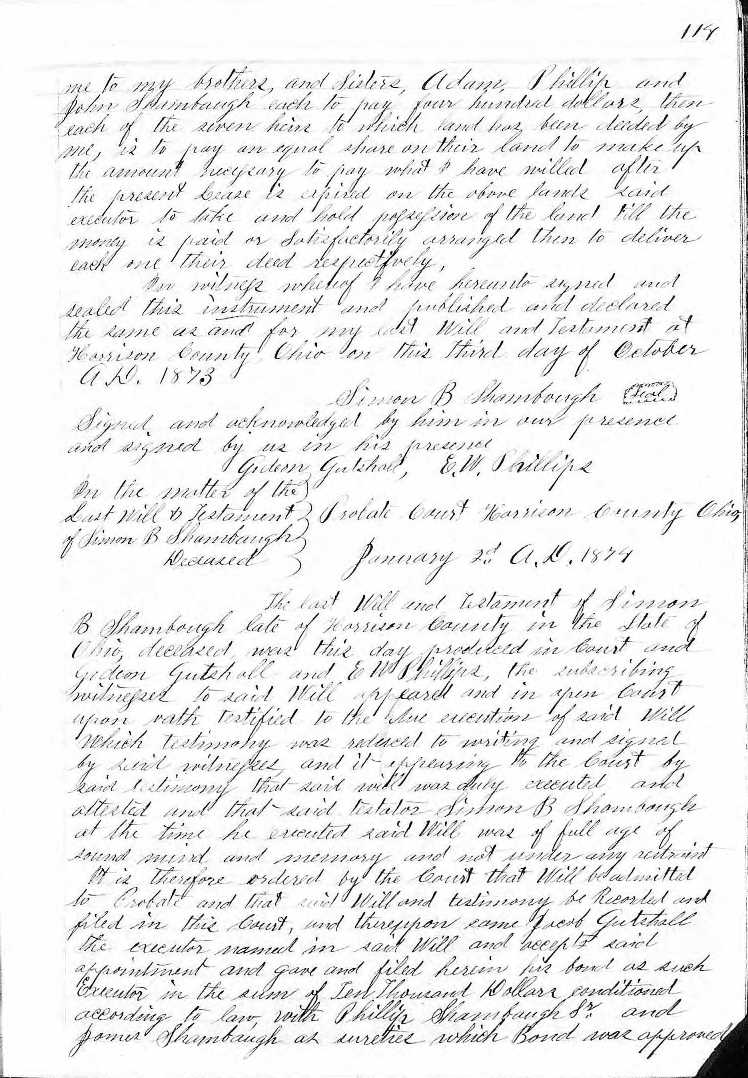 118
me to my brothers, and Sisters, Adam, Phillip and
John Shambaugh each to pay four hundred dollars, then
each of the seven heirs to which land has been deeded by
me, is to pay an equal share on their land to make up
the amount necessary to pay what I have willed after
the present Lease is expired on the above lands said
executor to take and hold possession of the land till the
money is paid or Satisfactorily arranged then to deliver
each one their deed respectively,
In witness whereof I have hereunto signed and
sealed this instrument and published and declared
the same as and for my last Will and Testiment at
Harrison County Ohio on this third day of October
A.D. 1873
Simon B Shambough Seal
Signed and acknowledged by him in our presence
and signed by us in his presence
Gideon Gutshall, E.W. Phillips
In the matter of the
Last Will & Testament
of Simon B Shambaugh
Deceased
Probate Court Harrison County Ohio,
January 2d A.D. 1874
The last Will and Testament of Simon
B Shambough late of Harrison County in the State of
Ohio, deceased, was this day produced in Court and
Gideon Gutshall and E W Phillips, the subscribing
witnesses to said Will appeared and in open Court
upon oath testified to the due execution of said Will
Which testimony was reduced to writing and signed
by said witnesses and it appearing to the Court by
said testimony that said will was duly executed and
attested and that said testator Simon B Shambough
at the time he executed said Will was of full age of
sound mind and memory and not under any restraint
It is therefore ordered by the Court that Will be admitted
to Probate and that said Will and testimony be Recorded and
filed in this Court, and thereupon came Jacob Gutshall
the executor named in said Will and accepts said
appointment and gave and filed herein his bond as such
Executor in the sum of Ten Thousand Dollars conditioned
according to law, with Phillip Shambaugh Sr. and
James Shambaugh as sureties which Bond was approved